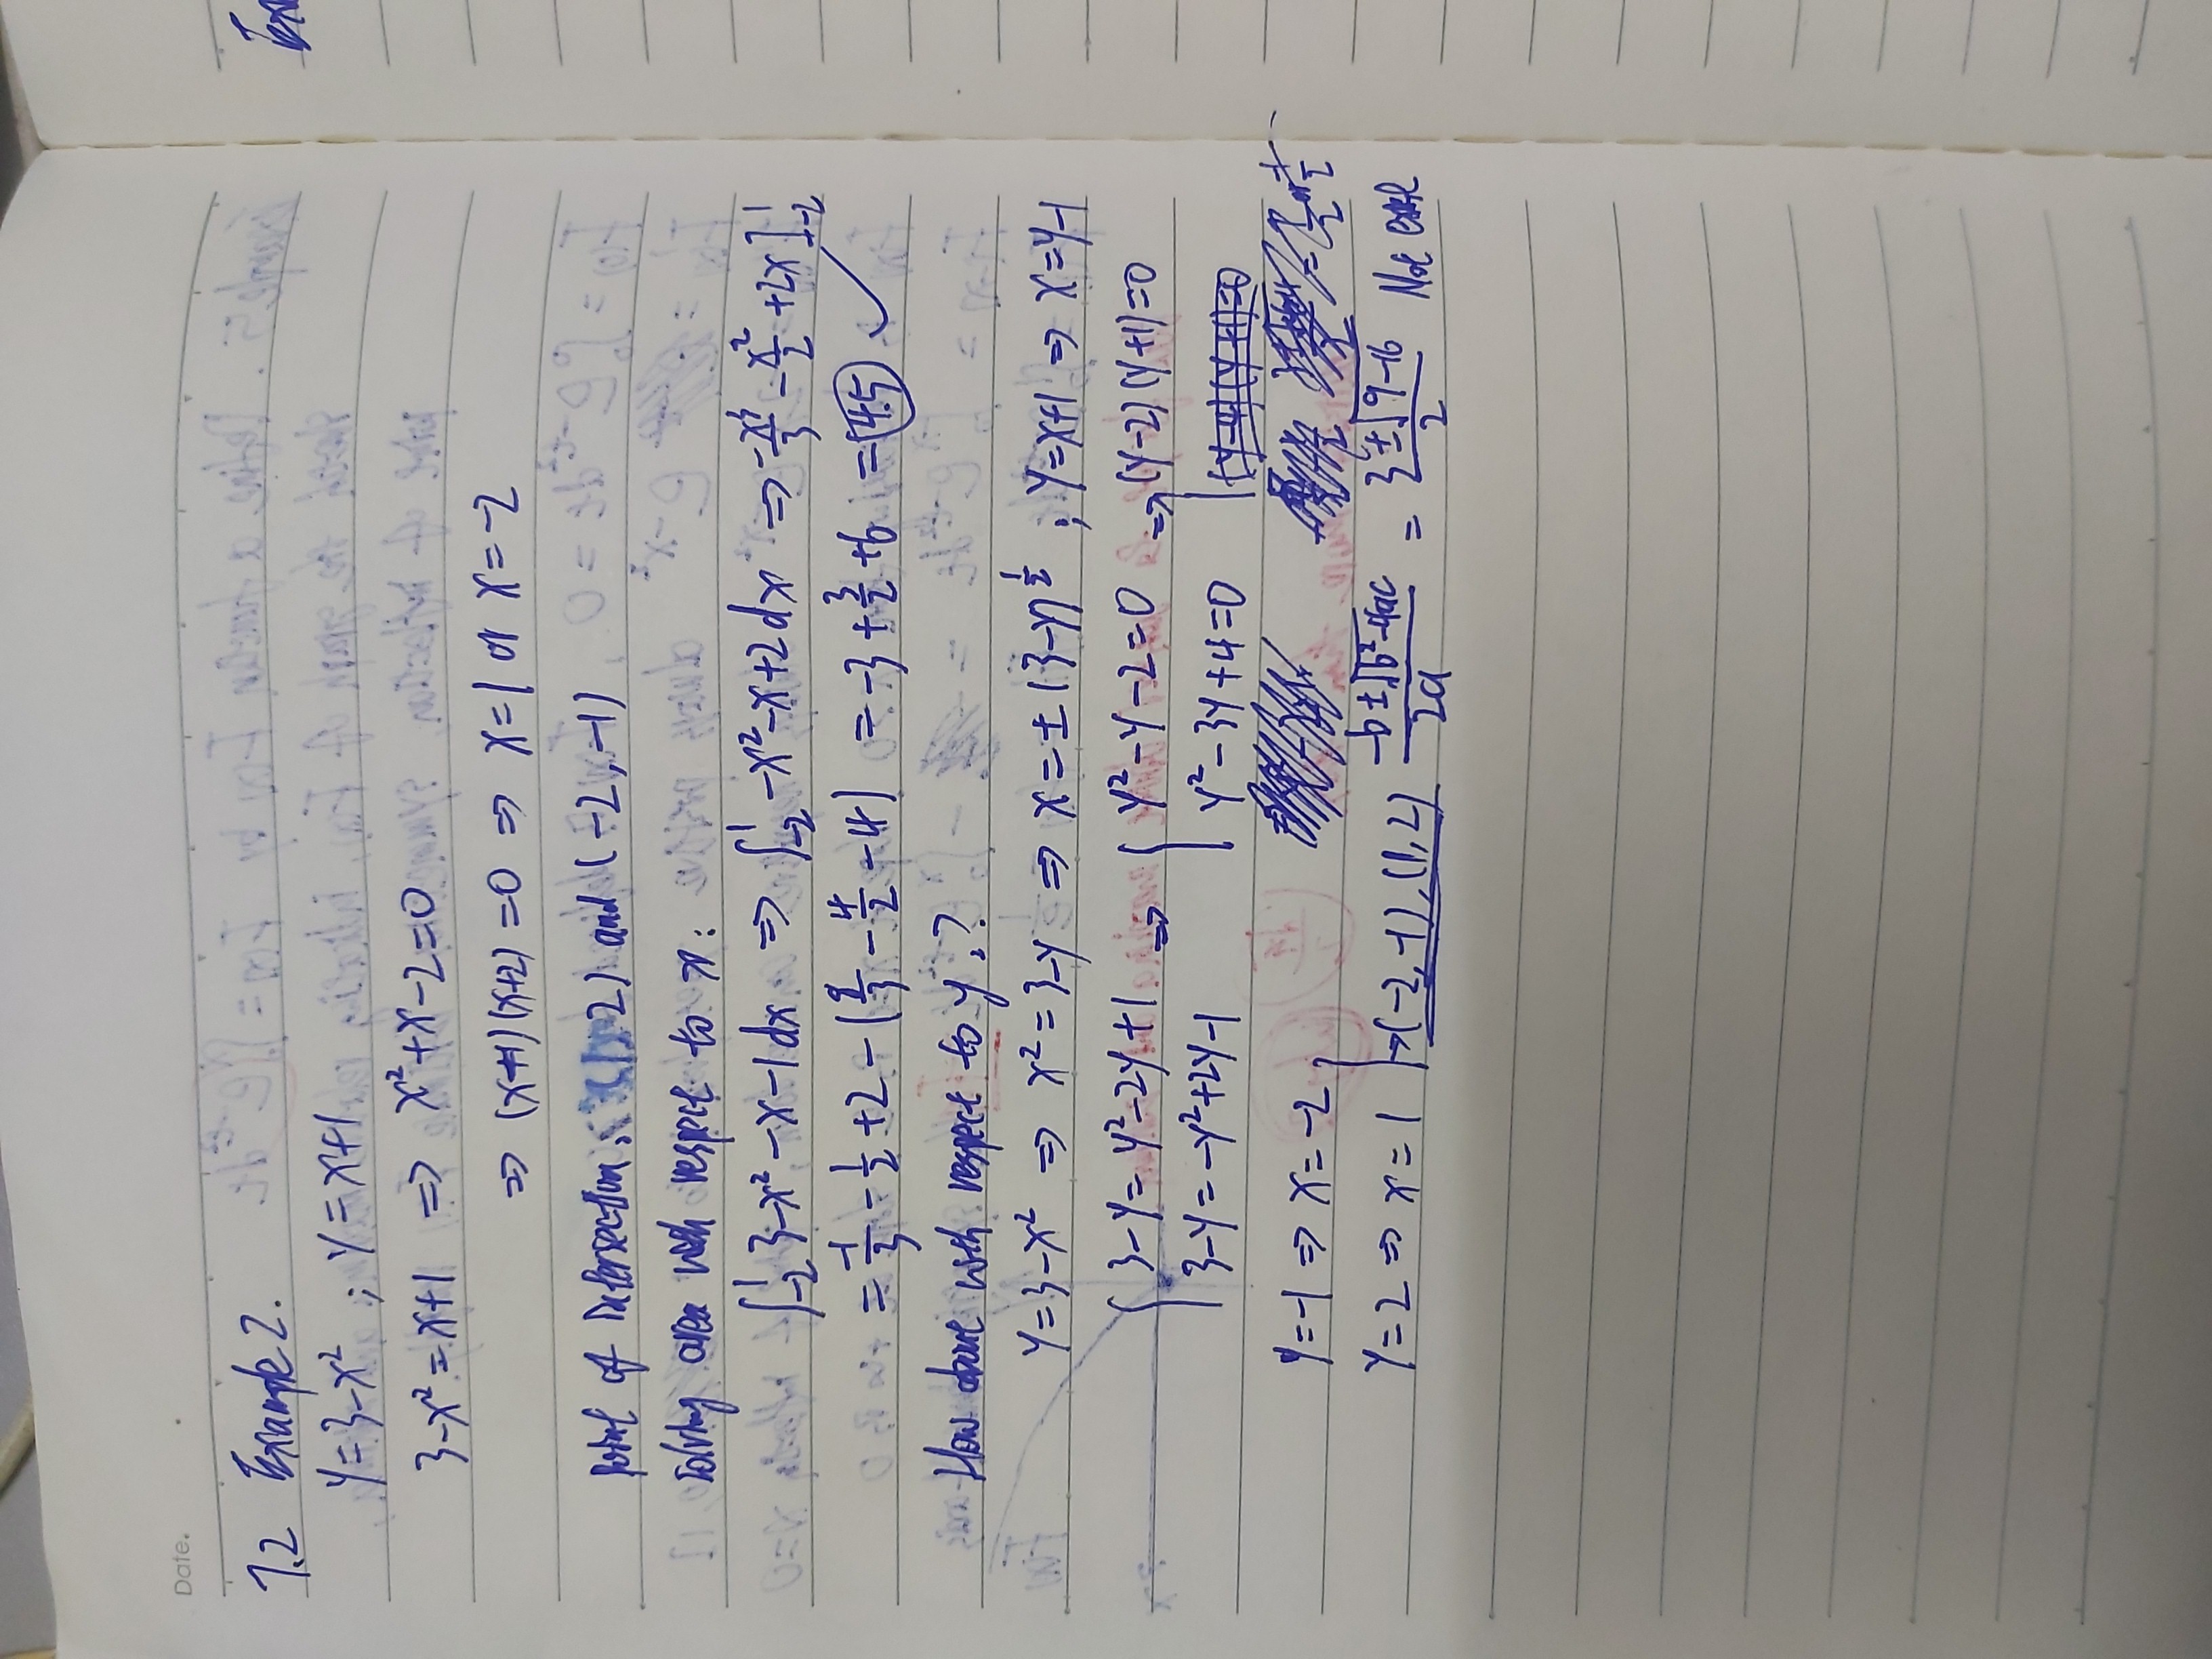 Date.
7.2 Example 2.
y=3-x² ; y=x+1
3-x²=x+1 ⇒ x²+x-2=0
⇒ (x-1)(x+2)=0 ⇒ x=1 or x=-2
point of intersection: 2) and (-2,-1)
solving area with respect to x:
∫₋₂¹ 3-x²-x-1 dx ⇒ ∫₋₂¹ -x²-x+2 dx ⇒ -x³/3 - x²/2 + 2x ]₋₂¹
= -1/3 - 1/2 + 2 - (8/3 - 4/2 - 4) = -3 + 3/2 + 6 = 4.5 ✓
How about with respect to y.?
y=3-x² ⇒ x²=3-y ⇒ x=±(3-y)^½ ; y=x+1 ⇒ x=y-1
{ 3-y=y²-2y+1 ⇒ { y²-y-2=0 ⇒ (y-2)(y+1)=0
3-y=-y²+2y-1 y²-3y+4=0
y=-1 ⇒ x=-2
y=2 ⇒ x=1 → (-2,-1), (1,2) (-b±√(b²-4ac))/2a = (3±√(9-16))/2 Not exist